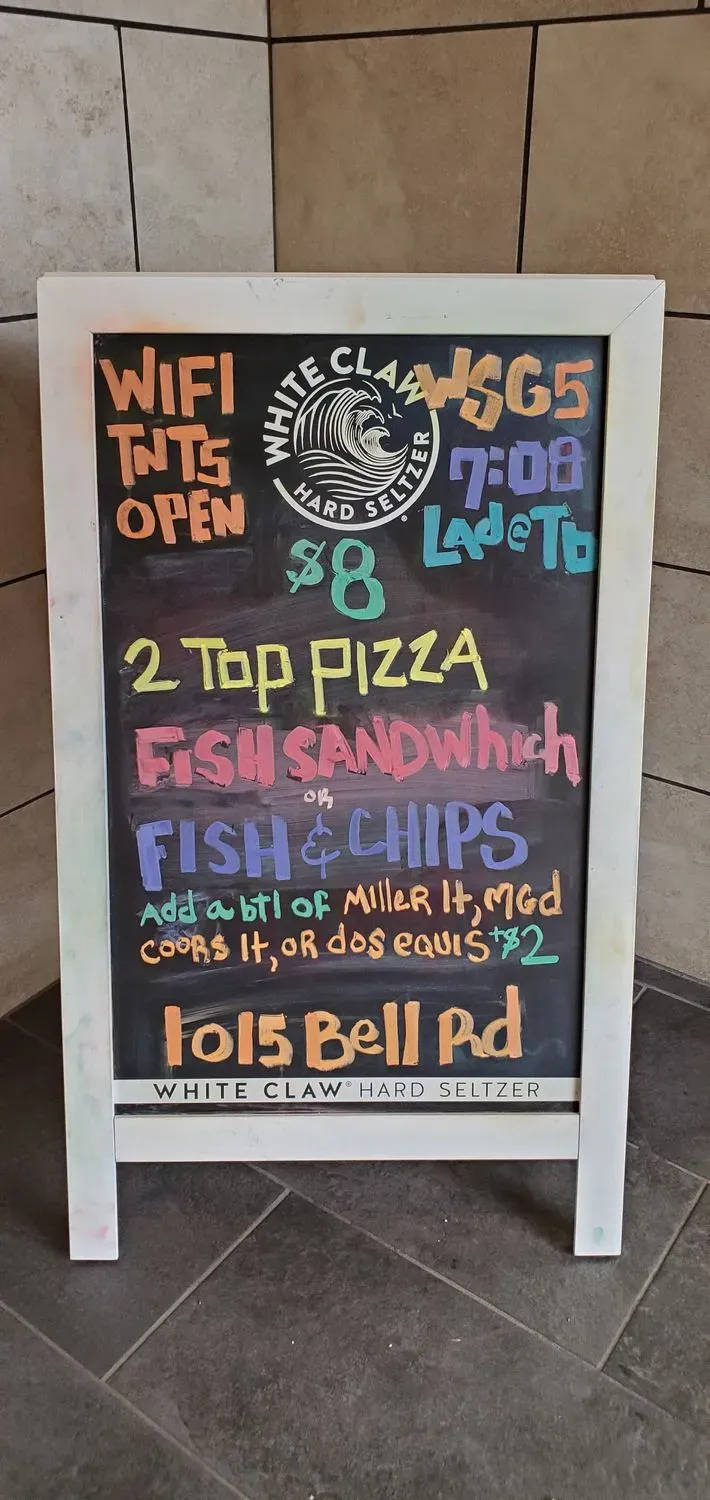 WIFI
TNTS
OPEN
WHITE CLAW
HARD SELTZER
WSG5
7:08
LAdeTb
$8
2 TOP PIZZA
FISH SANDWhich
OR
FISH & CHIPS
Add a btl of MilleR lt, MGd
COORS lt, OR dos equis +$2
1015 Bell Rd
WHITE CLAW® HARD SELTZER